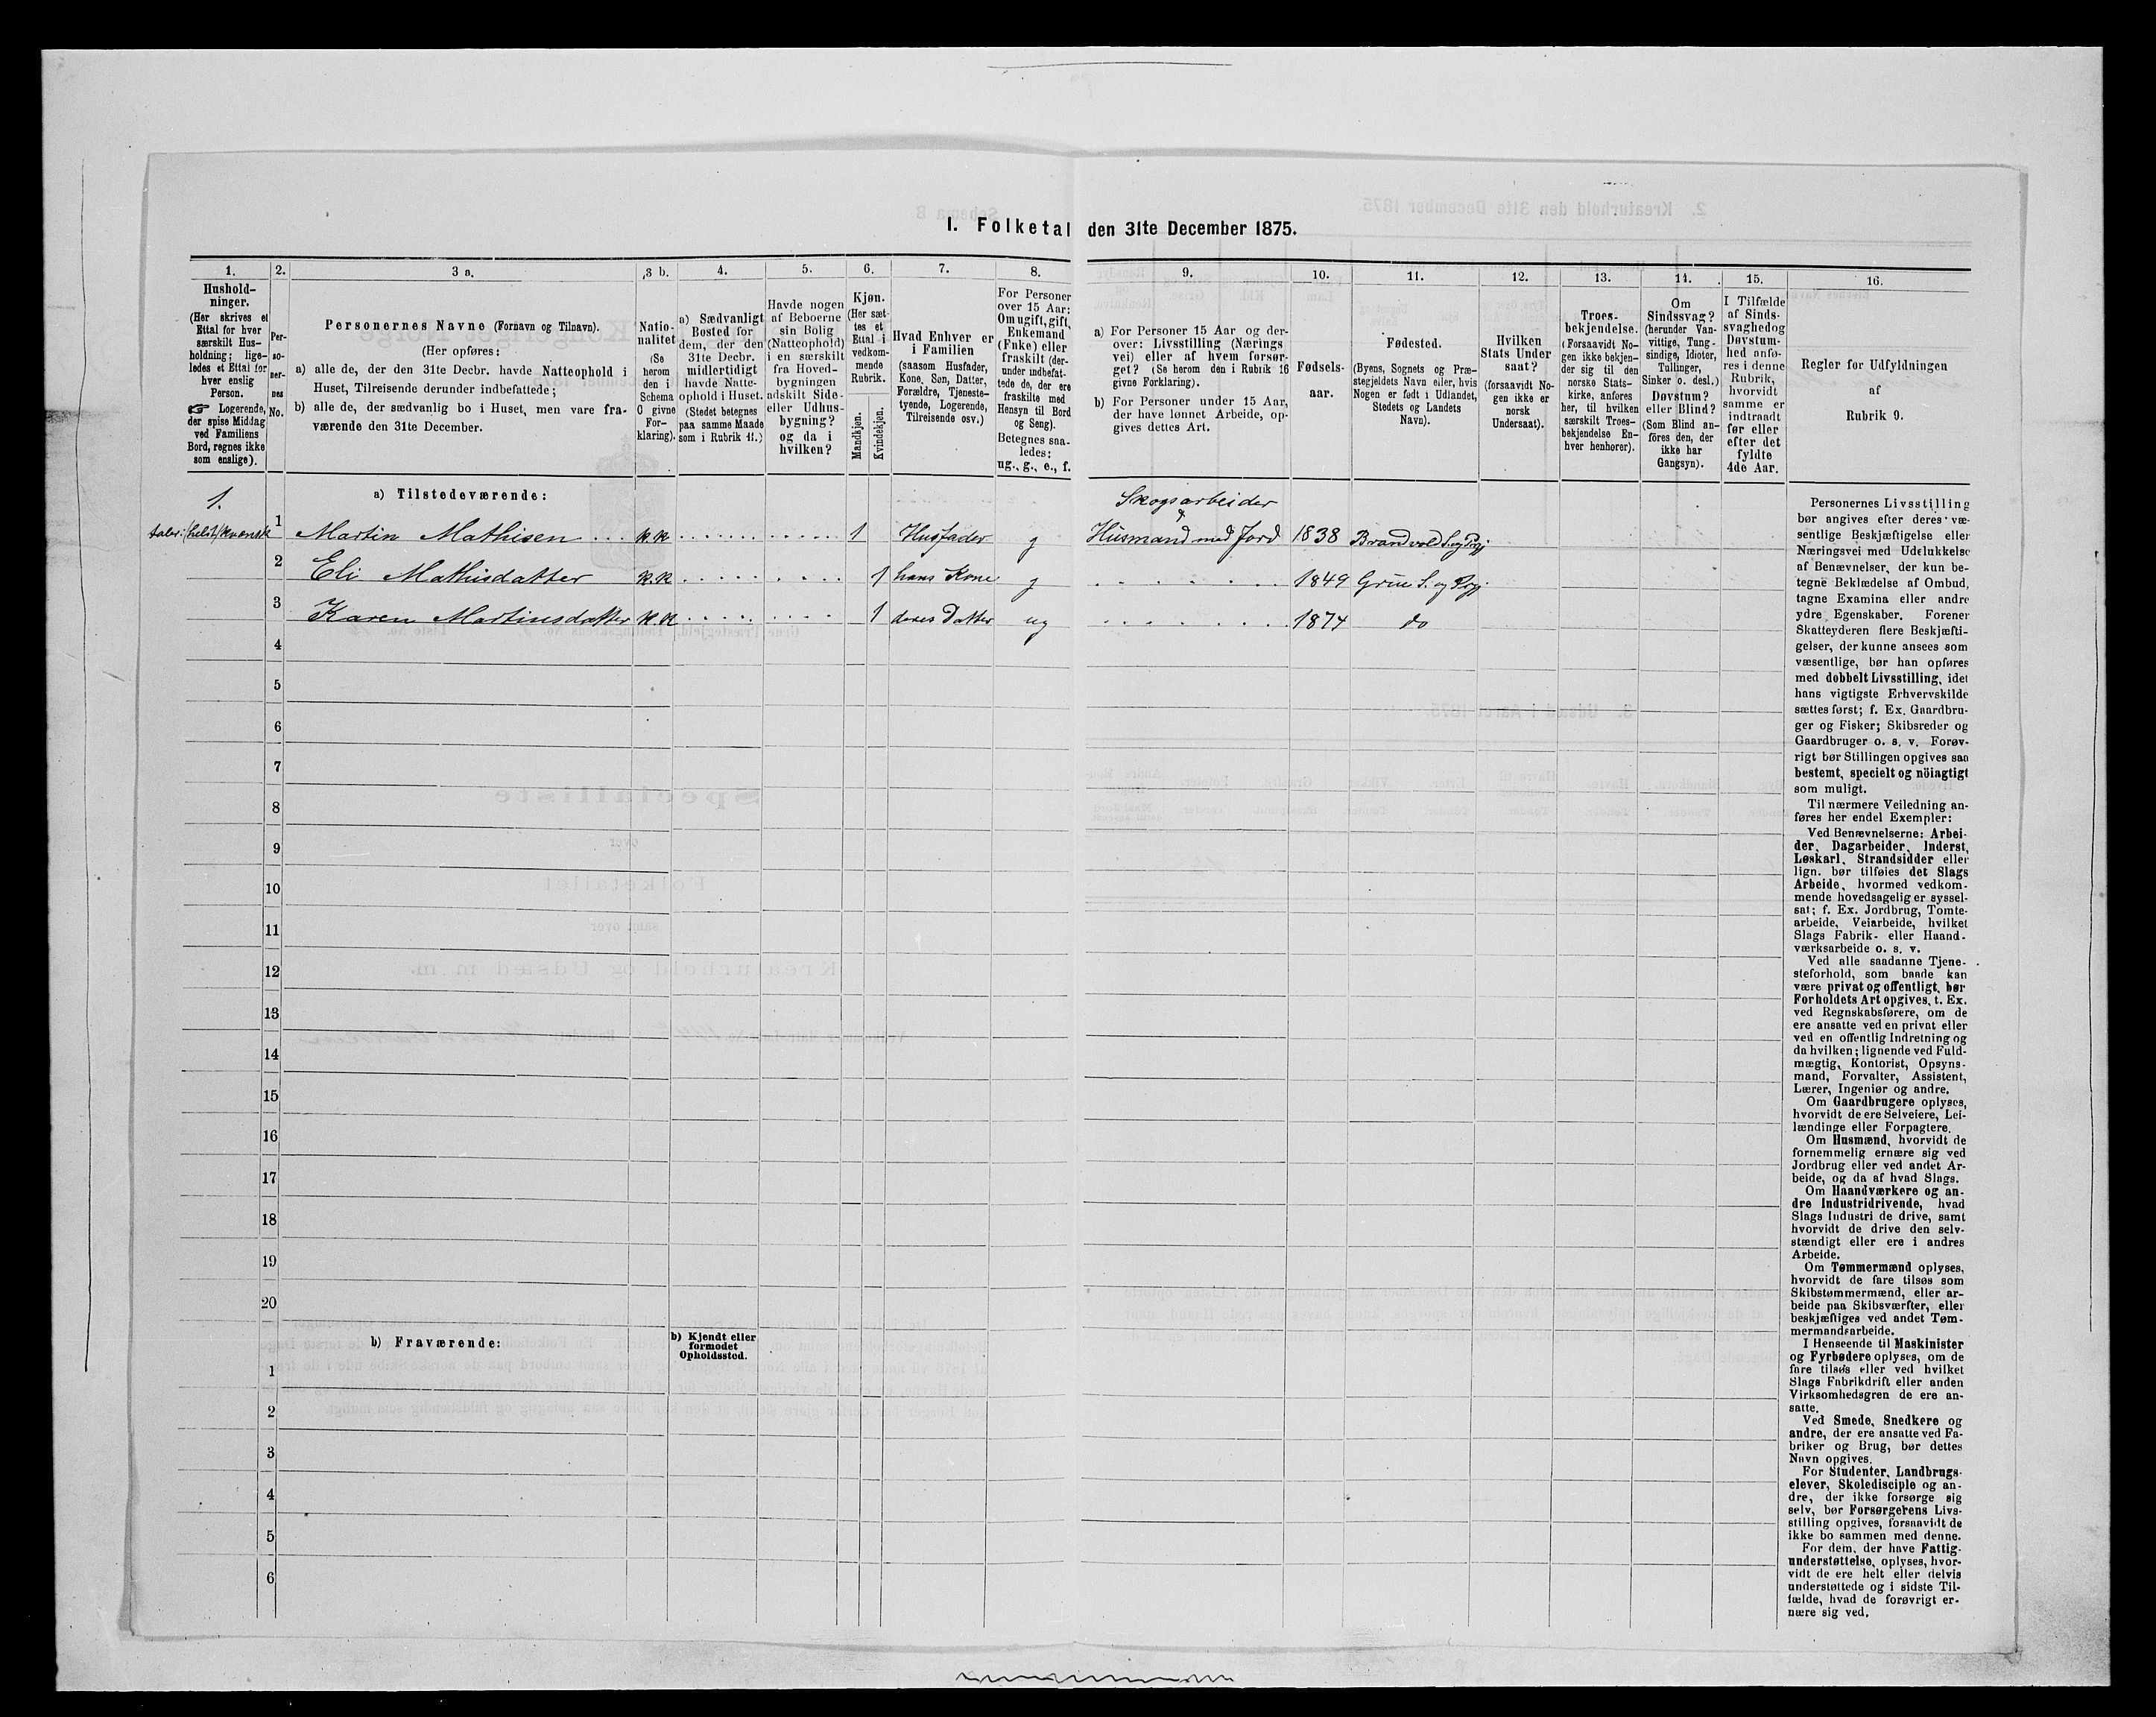 I. Folketal den 31te December 1875.
1.
Hushold-
ninger.
(Her skrives et
Ettal for hver
særskilt Hus-
holdning; lige-
ledes et Ettal for
hver enslig
Person.
☞ Logerende,
der spise Middag
ved Familiens
Bord, regnes ikke
som enslige).
2.
Per-
so-
ner-
nes
No.
3 a.
Personernes Navne (Fornavn og Tilnavn).
(Her opføres:
a) alle de, der den 31te Decbr. havde Natteophold i
Huset, Tilreisende derunder indbefattede;
b) alle de, der sædvanlig bo i Huset, men vare fra-
værende den 31te December.
3 b.
Natio-
nalitet
(Se
herom
den i
Schema
C givne
For-
klaring).
4.
a) Sædvanligt
Bosted for
dem, der den
31te Decbr.
midlertidigt
havde Natte-
ophold i Huset.
(Stedet betegnes
paa samme Maade
som i Rubrik 11.)
5.
Havde nogen
af Beboerne
sin Bolig
(Natteophold)
i en særskilt
fra Hoved-
bygningen
adskilt Side-
eller Udhus-
bygning?
og da i
hvilken?
6.
Kjøn.
(Her sæt-
tes et
Ettal i
vedkom-
mende
Rubrik.
Mandkjøn.
Kvindekjøn.
7.
Hvad Enhver er
i Familien
(saasom Husfader,
Kone, Søn, Datter,
Forældre, Tjeneste-
tyende, Logerende,
Tilreisende osv.)
8.
For Personer
over 15 Aar:
Om ugift, gift,
Enkemand
(Enke) eller
fraskilt (der-
under indbefat-
tede de, der ere
fraskilte med
Hensyn til Bord
og Seng).
Betegnes saa-
ledes:
ug., g., e., f.
9.
a) For Personer 15 Aar og der-
over: Livsstilling (Nærings
vei) eller af hvem forsør-
get? (Se herom den i Rubrik 16
givne Forklaring).
b) For Personer under 15 Aar,
der have lønnet Arbeide, op-
gives dettes Art.
10.
Fødsels-
aar.
11.
Fødested.
(Byens, Sognets og Præ-
stegjeldets Navn eller, hvis
Nogen er født i Udlandet,
Stedets og Landets
Navn).
12.
Hvilken
Stats Under
saat?
(forsaavidt No-
gen ikke er
norsk
Undersaat).
13.
Troes-
bekjendelse.
(Forsaavidt No-
gen ikke bekjen-
der sig til den
norske Stats-
kirke, anføres
her, til hvilken
særskilt Troes-
bekjendelse En-
hver henhører).
14.
Om
Sindssvag?
(herunder Van-
vittige, Tung-
sindige, Idioter,
Tullinger,
Sinker o. desl.)
Døvstum?
eller Blind?
(Som Blind an-
føres den, der
ikke har
Gangsyn).
15.
I Tilfælde
af Sinds-
svaghed og
Døvstum-
hed anfø-
res i denne
Rubrik,
hvorvidt
samme er
indtraadt
før eller
efter det
fyldte
4de Aar.
16.
Regler for Udfyldningen
af
Rubrik 9.
1.
a) Tilstedeværende:
Skogsarbeider
1 Martin Mathisen k.k 1 Husfader g Husmand med Jord 1838 Brandvold S. og Prgj
2 Eli Mathisdatter k.k 1 hans Kone g 1849 Grue S. og Prgj.
3 Karen Martinsdatter k.k 1 deres Datter ug 1874 do
4
5
6
7
8
9
10
11
12
13
14
15
16
17
18
19
20
b) Fraværende:
b) Kjendt eller
formodet
Opholdssted.
1
2
3
4
5
6
Personernes Livsstilling
bør angives efter deres væ-
sentlige Beskjæftigelse eller
Næringsvei med Udelukkelse
af Benævnelser, der kun be-
tegne Beklædelse af Ombud,
tagne Examina eller andre
ydre Egenskaber. Forener
Skatteyderen flere Beskjæfti-
gelser, der kunne ansees som
væsentlige, bør han opføres
med dobbelt Livsstilling, idet
hans vigtigste Erhvervskilde
sættes først; f. Ex. Gaardbru-
ger og Fisker; Skibsreder og
Gaardbruger o. s. v. Forøv-
rigt bør Stillingen opgives saa
bestemt, specielt og nöiagtigt
som muligt.
Til nærmere Veiledning an-
føres her endel Exempler:
Ved Benævnelserne: Arbei-
der, Dagarbeider, Inderst,
Løskarl, Strandsidder eller
lign. bør tilføies det Slags
Arbeide, hvormed vedkom-
mende hovedsagelig er syssel-
sat; f. Ex. Jordbrug, Tomte-
arbeide, Veiarbeide, hvilket
Slags Fabrik- eller Haand-
værksarbeide o. s. v.
Ved alle saadanne Tjene-
steforhold, som baade kan
være privat og offentligt, bør
Forholdets Art opgives, t. Ex.
ved Regnskabsførere, om de
ere ansatte ved en privat eller
ved en offentlig Indretning og
da hvilken; lignende ved Fuld-
mægtig, Kontorist, Opsyns-
mand, Forvalter, Assistent,
Lærer, Ingeniør og andre.
Om Gaardbrugere oplyses,
hvorvidt de ere Selveiere, Lei-
lændinge eller Forpagtere.
Om Husmænd, hvorvidt de
fornemmelig ernære sig ved
Jordbrug eller ved andet Ar-
beide, og da af hvad Slags.
Om Haandværkere og an-
dre Industridrivende, hvad
Slags Industri de drive, samt
hvorvidt de drive den selv-
stændigt eller ere i andres
Arbeide.
Om Tømmermænd oplyses,
hvorvidt de fare tilsøs som
Skibstømmermænd, eller ar-
beide paa Skibsværfter, eller
beskjæftiges ved andet Tøm-
mermandsarbeide.
I Henseende til Maskinister
og Fyrbødere oplyses, om de
fare tilsøs eller ved hvilket
Slags Fabrikdrift eller anden
Virksomhedsgren de ere an-
satte.
Ved Smede, Snedkere og
andre, der ere ansatte ved Fa-
briker og Brug, bør dettes
Navn opgives.
For Studenter, Landbrugs-
elever, Skoledisciple og an-
dre, der ikke forsørge sig
selv, bør Forsørgerens Livs-
stilling opgives, forsaavidt de
ikke bo sammen med denne.
For dem, der have Fattig-
understøttelse, oplyses, hvor-
vidt de ere helt eller delvis
understøttede og i sidste Til-
fælde, hvad de forøvrigt er-
nære sig ved.